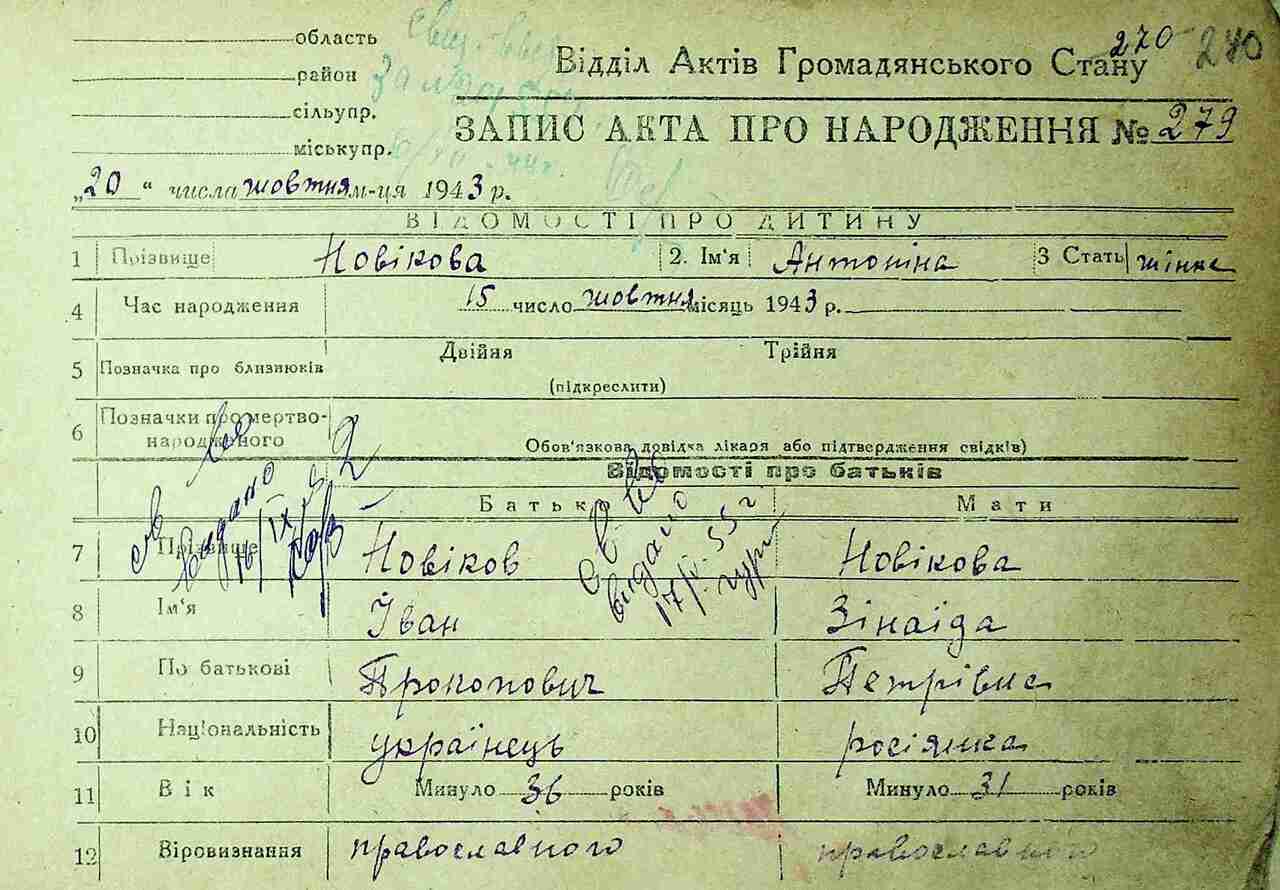 область
270 270
район
Відділ Актів Громадянського Стану
сільупр.
ЗАПИС АКТА ПРО НАРОДЖЕННЯ № 279
міськупр.
„20“ числа жовтня м-ця 1943 р.
ВІДОМОСТІ ПРО ДИТИНУ
1 Прізвище Новікова 2. Ім'я Антоніна 3 Стать жінк
4 Час народження 15 число жовтня місяць 1943 р.
5 Позначка про близнюків Двійня Трійня
(підкреслити)
6 Позначки про мертво-
народженого
Обов'язкова довідка лікаря або підтвердження свідків)
Відомості про батьків
Батько Мати
7 Прізвище Новіков Новікова
видано
видано
8 Ім'я Іван Зінаїда
9 По батькові Прокопович Петрівна
10 Національність українець росіянка
11 Вік Минуло 36 років Минуло 31 років
12 Віровизнання православного православного